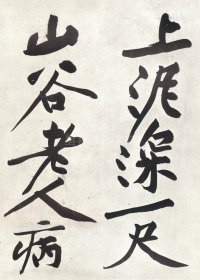 上泥深一尺
山谷老人病